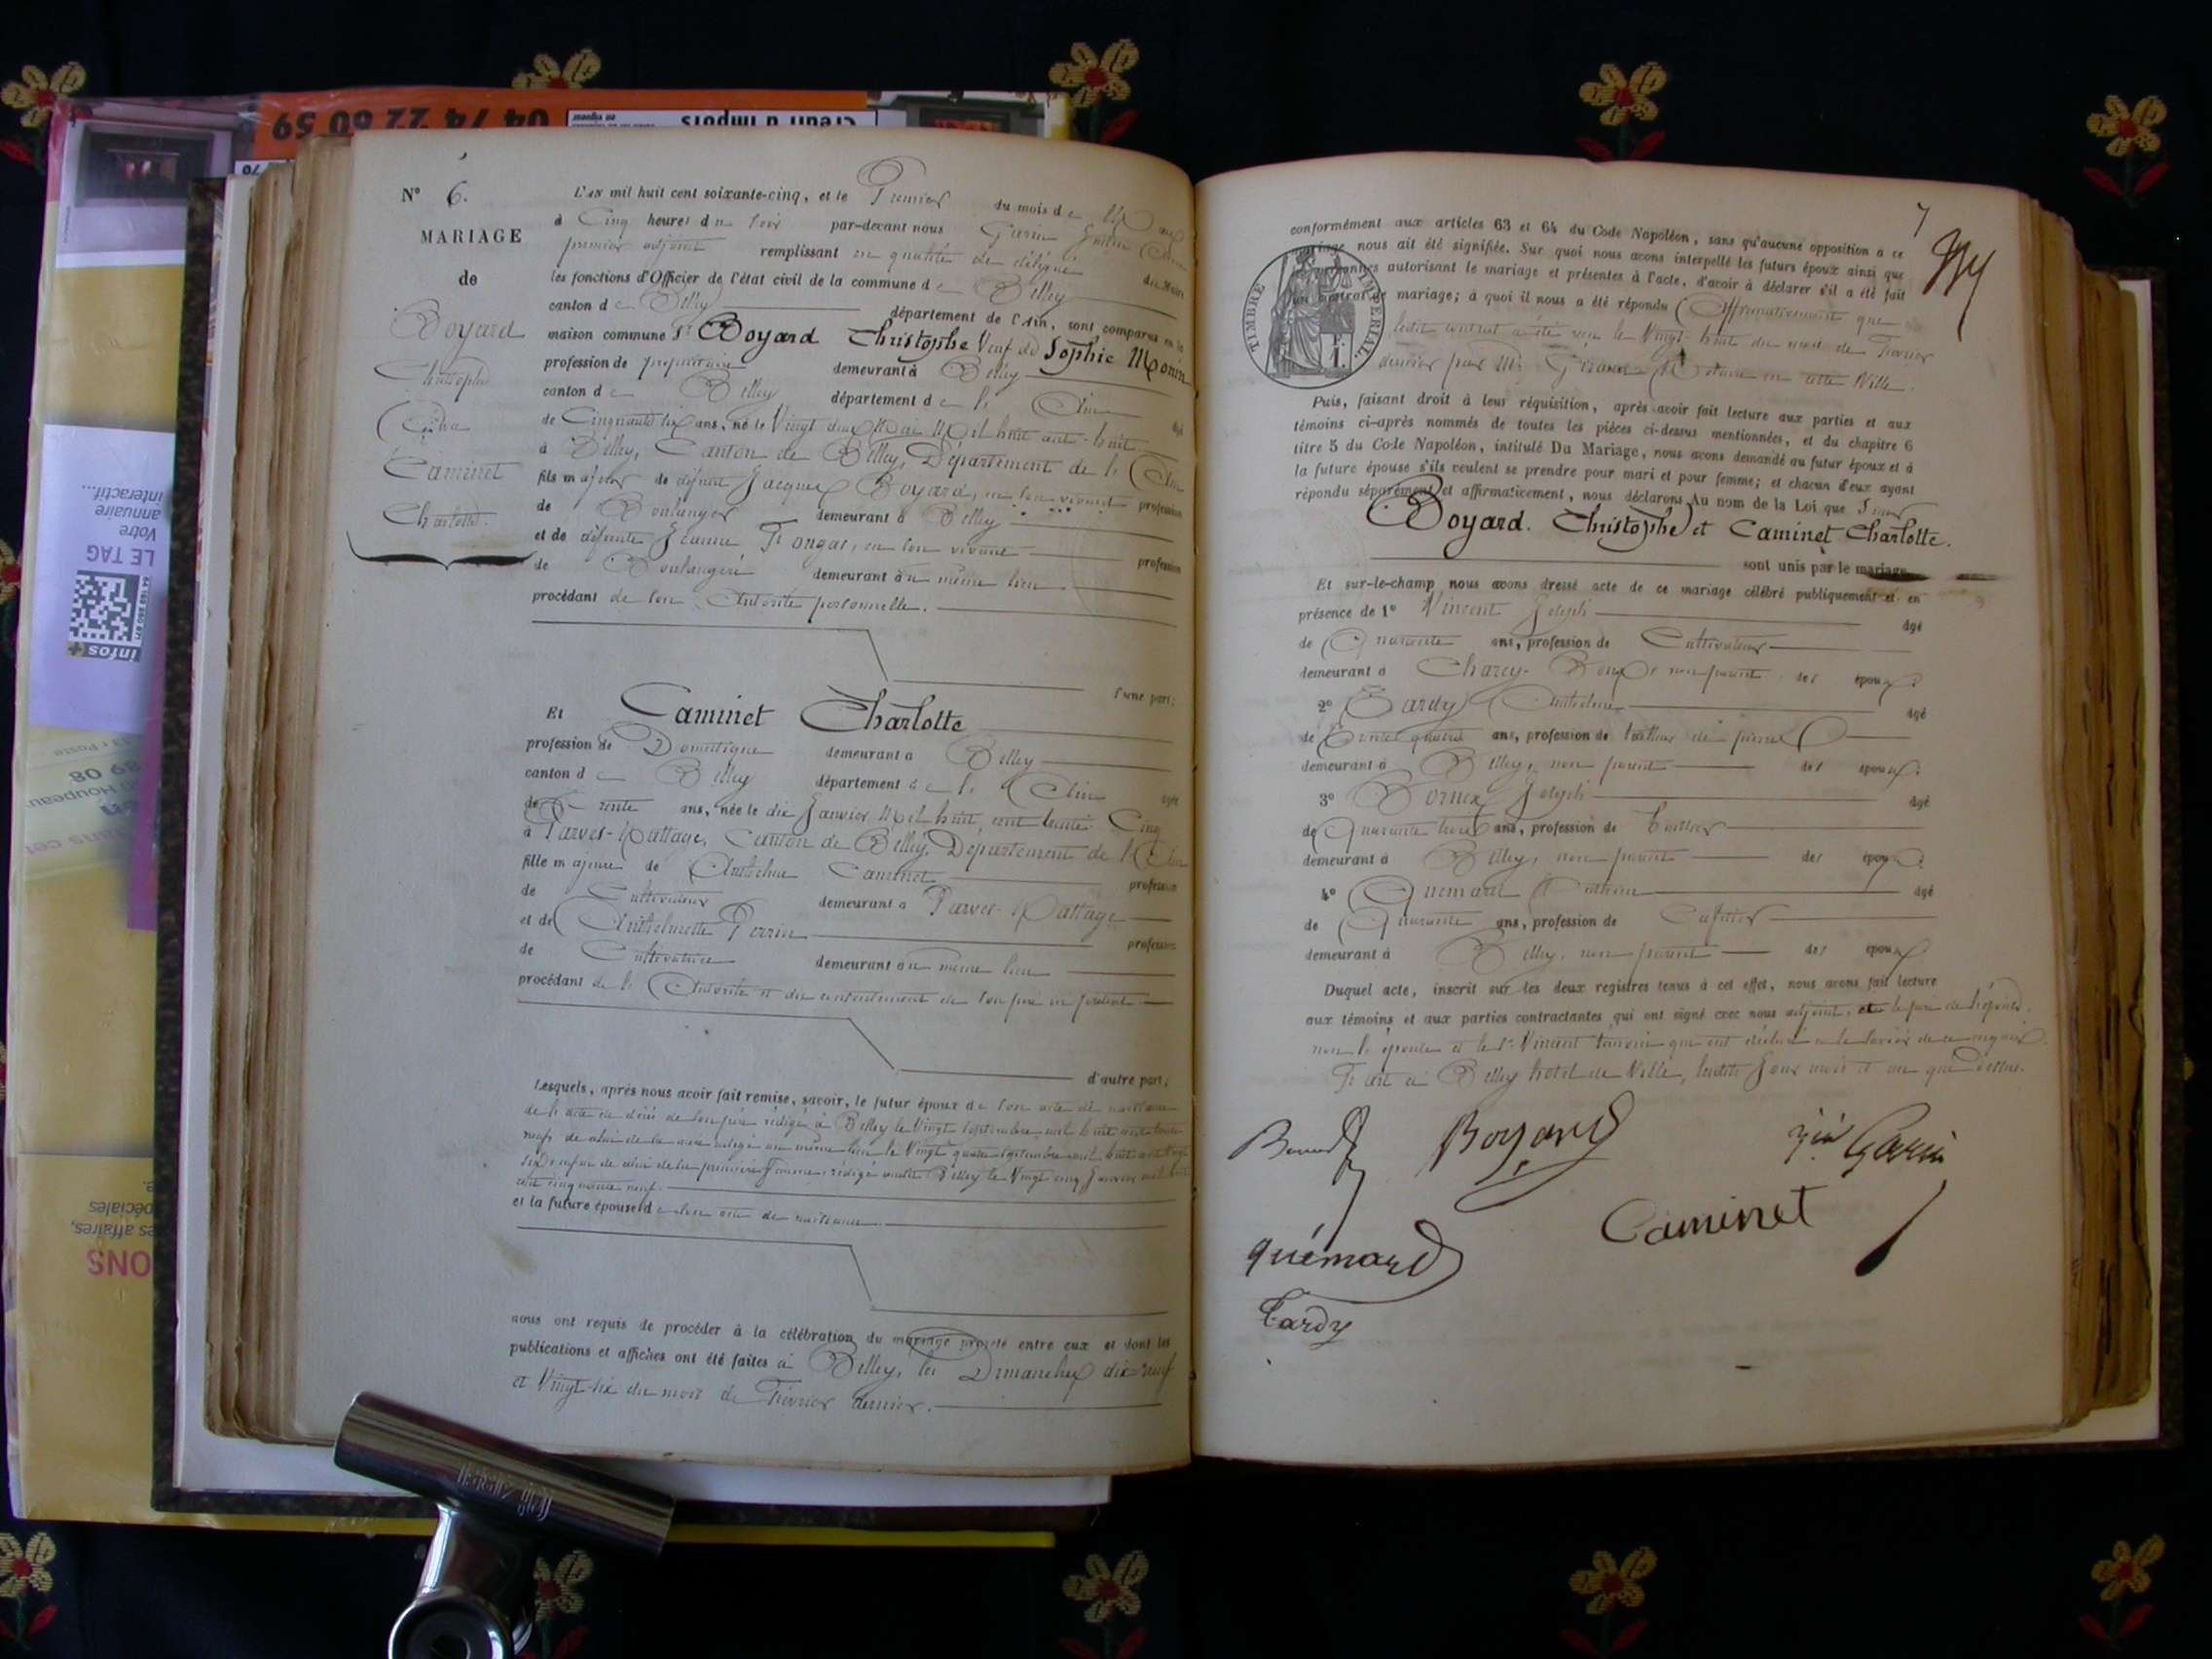 04 74 22 60 59
Crédit d'Impôts
infos+
LE TAG
Votre
annuaire
interactif...
N° 6.
MARIAGE
de
Boyard
Christophe
Caminet
Charlotte.
L'an mil huit cent soixante-cinq, et le Premier du mois de Mars
à Cinq heures du soir par-devant nous
premier adjoint remplissant en qualité de délégué du Maire
les fonctions d'Officier de l'état civil de la commune de Belley
canton de Belley département de l'Ain, sont comparus en la
maison commune Sr Boyard Christophe Veuf de Sophie Monin
profession de propriétaire demeurant à Belley
canton de Belley département de l'Ain âgé
de Cinquante six ans, né le Vingt deux Mai Mil huit cent-huit
à Belley, Canton de Belley, Département de l'Ain
fils majeur de défunt Jacques Boyard, en son vivant profession
de Boulanger demeurant à Belley
et de défunte Jeanne en son vivant profession
de Boulangère demeurant au même lieu
procédant de son Autorité personnelle.
d'une part;
Et Caminet Charlotte
profession de Domestique demeurant à Belley
canton de Belley département de l'Ain âgée
de Trente ans, née le dix Janvier Mil huit cent trente Cinq
à Parves-Nattage, Canton de Belley, Département de l'Ain
fille majeure de Anthelme Caminet profession
de Cultivateur demeurant à Parves-Nattage
et de Anthelmette Perrin profession
de Cultivatrice demeurant au même lieu
procédant de l'Autorité et du consentement de son père ici présent
d'autre part;
Lesquels, après nous avoir fait remise, savoir, le futur époux de son acte de naissance
de l'acte de décès de son père rédigé à Belley le Vingt Septembre mil huit cent trente
neuf de celui de la mère rédigé au même lieu le Vingt quatre Septembre mil huit cent
six enfin de celui de la première femme rédigé audit Belley le Vingt cinq Janvier mil huit
cent cinquante neuf.
et la future épouse de son acte de naissance.
nous ont requis de procéder à la célébration du mariage projeté entre eux et dont les
publications et affiches ont été faites à Belley, les Dimanches dix neuf
et Vingt-six du mois de Février dernier.
7
TIMBRE IMPERIAL
conformément aux articles 63 et 64 du Code Napoléon, sans qu'aucune opposition a ce
mariage nous ait été signifiée. Sur quoi nous avons interpellé les futurs époux ainsi que
personnes autorisant le mariage et présentes à l'acte, d'avoir à déclarer s'il a été fait
un contrat de mariage; à quoi il nous a été répondu Affirmativement que
ledit contrat a été reçu le Vingt-huit du mois de Février
dernier par Me Notaire en cette Ville.
Puis, faisant droit à leur réquisition, après avoir fait lecture aux parties et aux
témoins ci-après nommés de toutes les pièces ci-dessus mentionnées, et du chapitre 6
titre 5 du Code Napoléon, intitulé Du Mariage, nous avons demandé au futur époux et à
la future épouse s'ils veulent se prendre pour mari et pour femme; et chacun d'eux ayant
répondu séparément et affirmativement, nous déclarons Au nom de la Loi que
Boyard. Christophe et Caminet Charlotte.
sont unis par le mariage.
Et sur-le-champ nous avons dressé acte de ce mariage célébré publiquement et en
présence de 1° Vincent Joseph âgé
de Quarante ans, profession de Cultivateur
demeurant à non parent des époux
2° Tardy Anthelme âgé
de Trente quatre ans, profession de tailleur de pierres
demeurant à Belley, non parent des époux
3° Bornex Joseph âgé
de Quarante trois ans, profession de
demeurant à Belley, non parent des époux
4° Quémard âgé
de Quarante ans, profession de Cafetier
demeurant à Belley, non parent des époux
Duquel acte, inscrit sur les deux registres tenus à cet effet, nous avons fait lecture
aux témoins et aux parties contractantes qui ont signé avec nous adjoint, et le père de l'épouse
non l'épouse et le Sr Vincent témoin qui ont déclaré ne le savoir de ce enquis.
Fait à Belley hôtel de Ville, lesdits Jour mois et an que dessus.
Boyard
Caminet
Quémard
Tardy